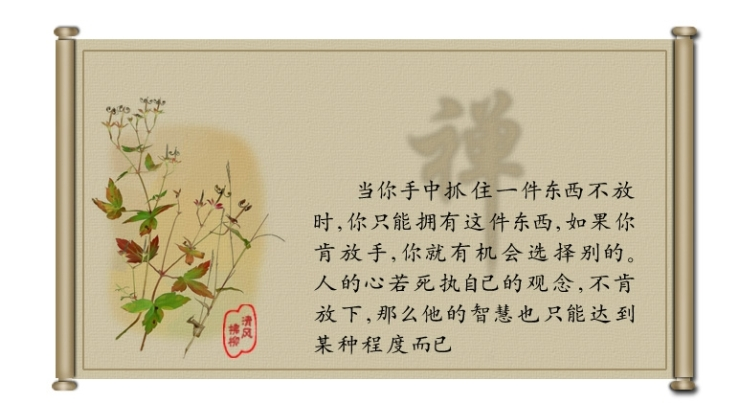 禅
当你手中抓住一件东西不放
时,你只能拥有这件东西,如果你
肯放手,你就有机会选择别的。
人的心若死执自己的观念,不肯
放下,那么他的智慧也只能达到
某种程度而已
清风
拂柳